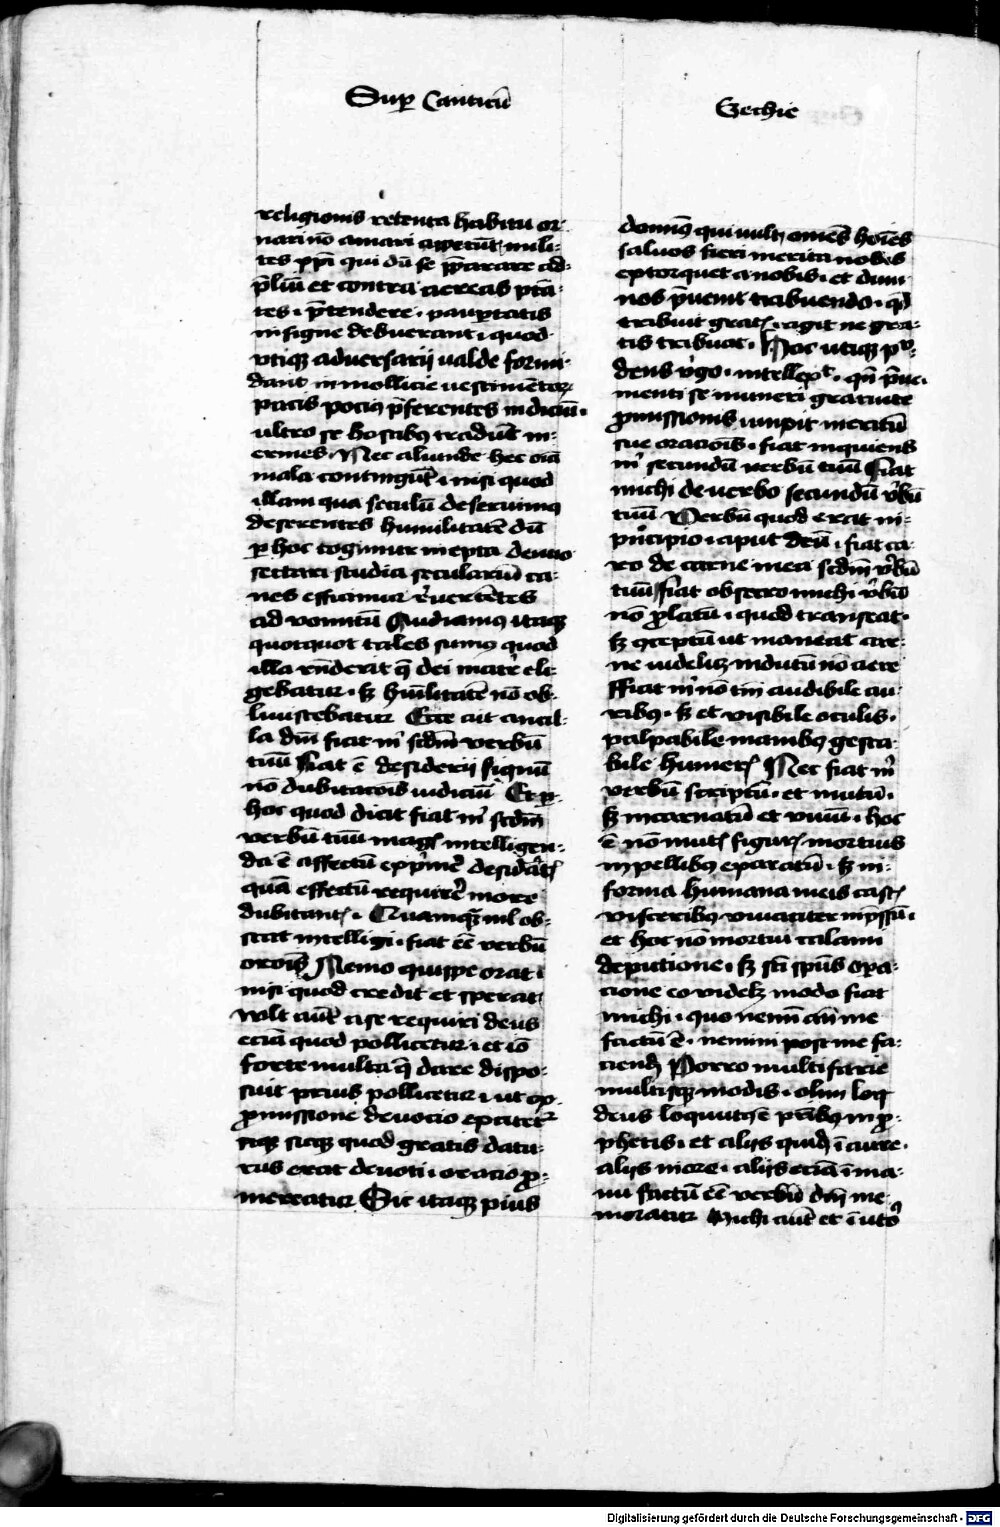 Sup Canticū
Ezechie
religionis retenta habitu or-
nari nō amari appetūt mili-
tes xpi qui dū se p̄parare ad
p̄liū et contra aereas ptā-
tes p̄tendere paupertatis
insigne debuerant quod
utiqꝫ adversarii valde formi-
dant in mollicie vestimētorꝝ
pacis pociꝰ p̄ferentes indiciū
ultro se hostibꝰ tradūt in-
ermes Nec aliunde hec oīa
mala contingūt nisi quod
illam qua seculū deseruimꝰ
deserentes humilitatē dū
p hoc cogimur inepta denuo
sectari studia seculariū ca-
nes efficimur rēvertētes
ad vomitū Audiamꝰ itaqꝫ
quotquot tales sumꝰ quod
illa rn̄derit q̄ dei mater ele-
gebatur sꝫ hūilitatē nō ob-
liuiscebatur Ecce ait ancil-
la dn̄i fiat m̄ scdm̄ verbū
tuū fiat ē desiderii signū
nō dubitacōis iudiciū Et p
hoc quod dicit fiat m̄ scdm̄
verbū tuū magis intelligen-
da ē affectū exp̄mē desidātꝭ
quā effectū requirē more
dubitantꝭ Quamqꝫ nil ob-
stat intelligi fiat eē verbū
orōis Nemo quippe orat
nisi quod credit et sperat
Wlt aūt a se requiri deus
eciā quod pollicetur et iō
forte multa q̄ dare dispo-
suit prius pollicetur ut ex
p̄missione devocio excitetꝛ
sicqꝫ quod gratis datu-
rus erat devoti oracio p-
mereatur Sic itaqꝫ pius
domnꝰ qui vult omēs hoīes
saluos fieri merita nobis
extorquet a nobis et dum
nos p̄uenit tribuendo qd
tribuit gratꝭ agit ne gra-
tis tribuat Hoc utiqꝫ pꝰ
dens v̓go intellexᵗ qn̄ p̄ue-
nienti se muneri gratuite
p̄missionis iunxit meritū
sue oracōis fiat inquiens
m̄ secundū verbū tuū Fiat
michi de verbo secundū v̓bū
tuū Verbū quod erat in
principio aput deū fiat ca-
ro de carne mea scdm̄ v̓bū
tuū fiat obsecro michi v̓bū
nō platū quod transeat
sꝫ ꝯceptū ut maneat car-
ne videlicꝫ indutū nō aere
Fiat m̄ nō tm̄ audibile au-
ribꝰ sꝫ et visibile oculis
palpabile manibꝰ gesta-
bile humerꝭ Nec fiat m̄
verbū scriptū et mutū
sꝫ incarnatū et vivū hoc
ē nō mutꝭ figurꝭ mortuis
in pellibꝰ exaratū sꝫ in
forma humana meis castꝭ
visceribꝰ vivaciter imp̄ssū
et hoc nō mortui calami
depictione sꝫ scī sp̄us opa-
cione eo videlꝫ modo fiat
michi quo nemī an̄ me
factū ē nemini post me fa-
ciendꝭ Porro multifarie
multisqꝫ modis olim loqꝭ
deus loquutꝰ ē pr̄ibꝰ in p-
phetis et aliis quidē ī aure
aliis in ore aliis eciā ī ma-
nu factū eē verbū dn̄i me-
moratur Michi aūt et ī utō